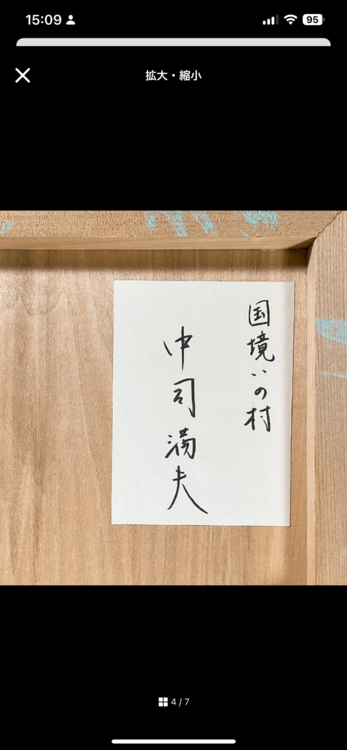 15:09
95
拡大・縮小
国境いの村
中司満夫
4 / 7